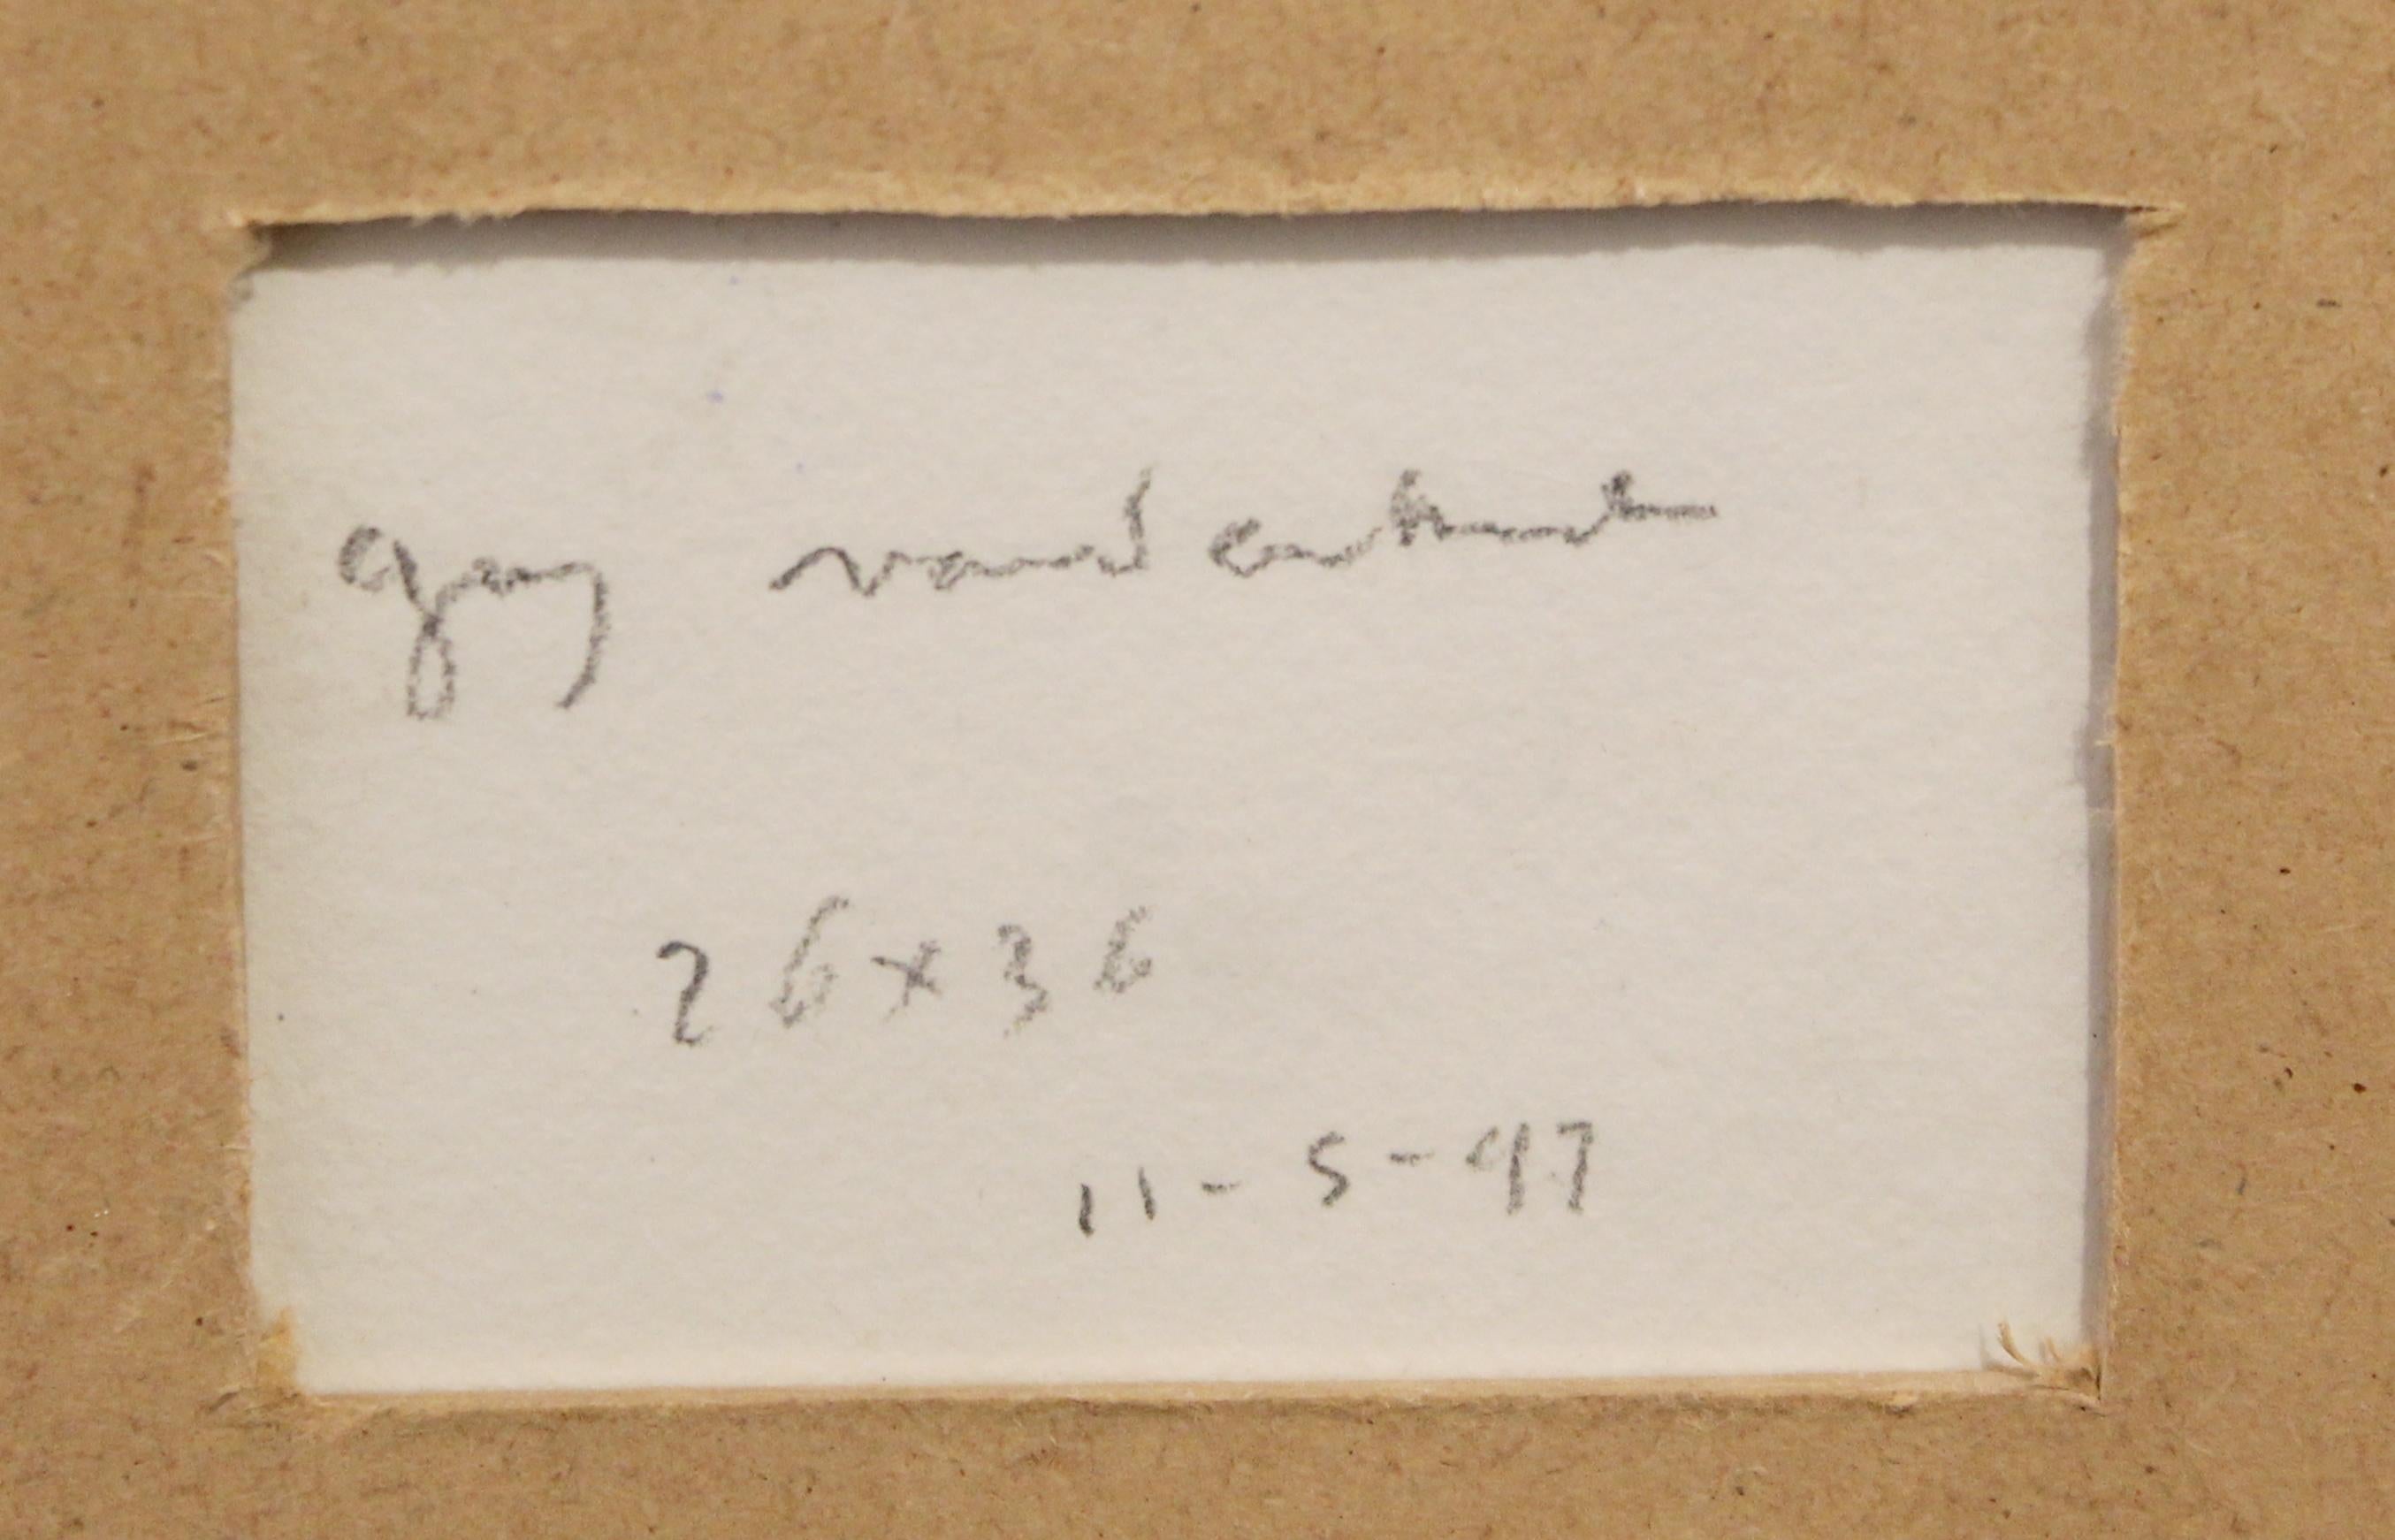 guy vandenbranden
26x36
11-5-97